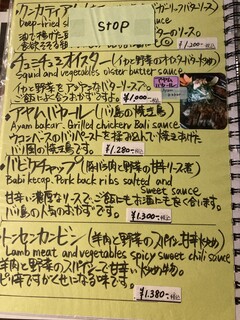 Deep-fried s
STOP
¥1,200-税込
チュミチュミオイスター (イカと野菜のオイスターバター炒め)
Squid and vegetables oister butter sauce
イカと野菜をアジアンなバターソースで。
ご飯にもよく合うおかずです。
¥1,000-税込
アヤムバカール (バリ島の焼き鳥)
Ayam bakar. Grilled chicken Bali sauce
バリ風の焼き鳥です。
¥1,280-税込
バビケチャップ (豚バラ肉と野菜の甘辛ソース煮)
Babi kecap. Pork back ribs salted and
sweet sauce
甘辛い濃厚なソースで、ご飯にもお酒にも良く合います。
バリ島の人気のおかずです。
¥1,300-税込
トンセンカンビン (羊肉と野菜のスパイシー甘辛炒め)
Lamb meat and vegetables spicy sweet chili sauce
羊肉と野菜のスパイシーで甘辛い炒め物。
ピリ辛ですがくせになる味です。
¥1,380-税込